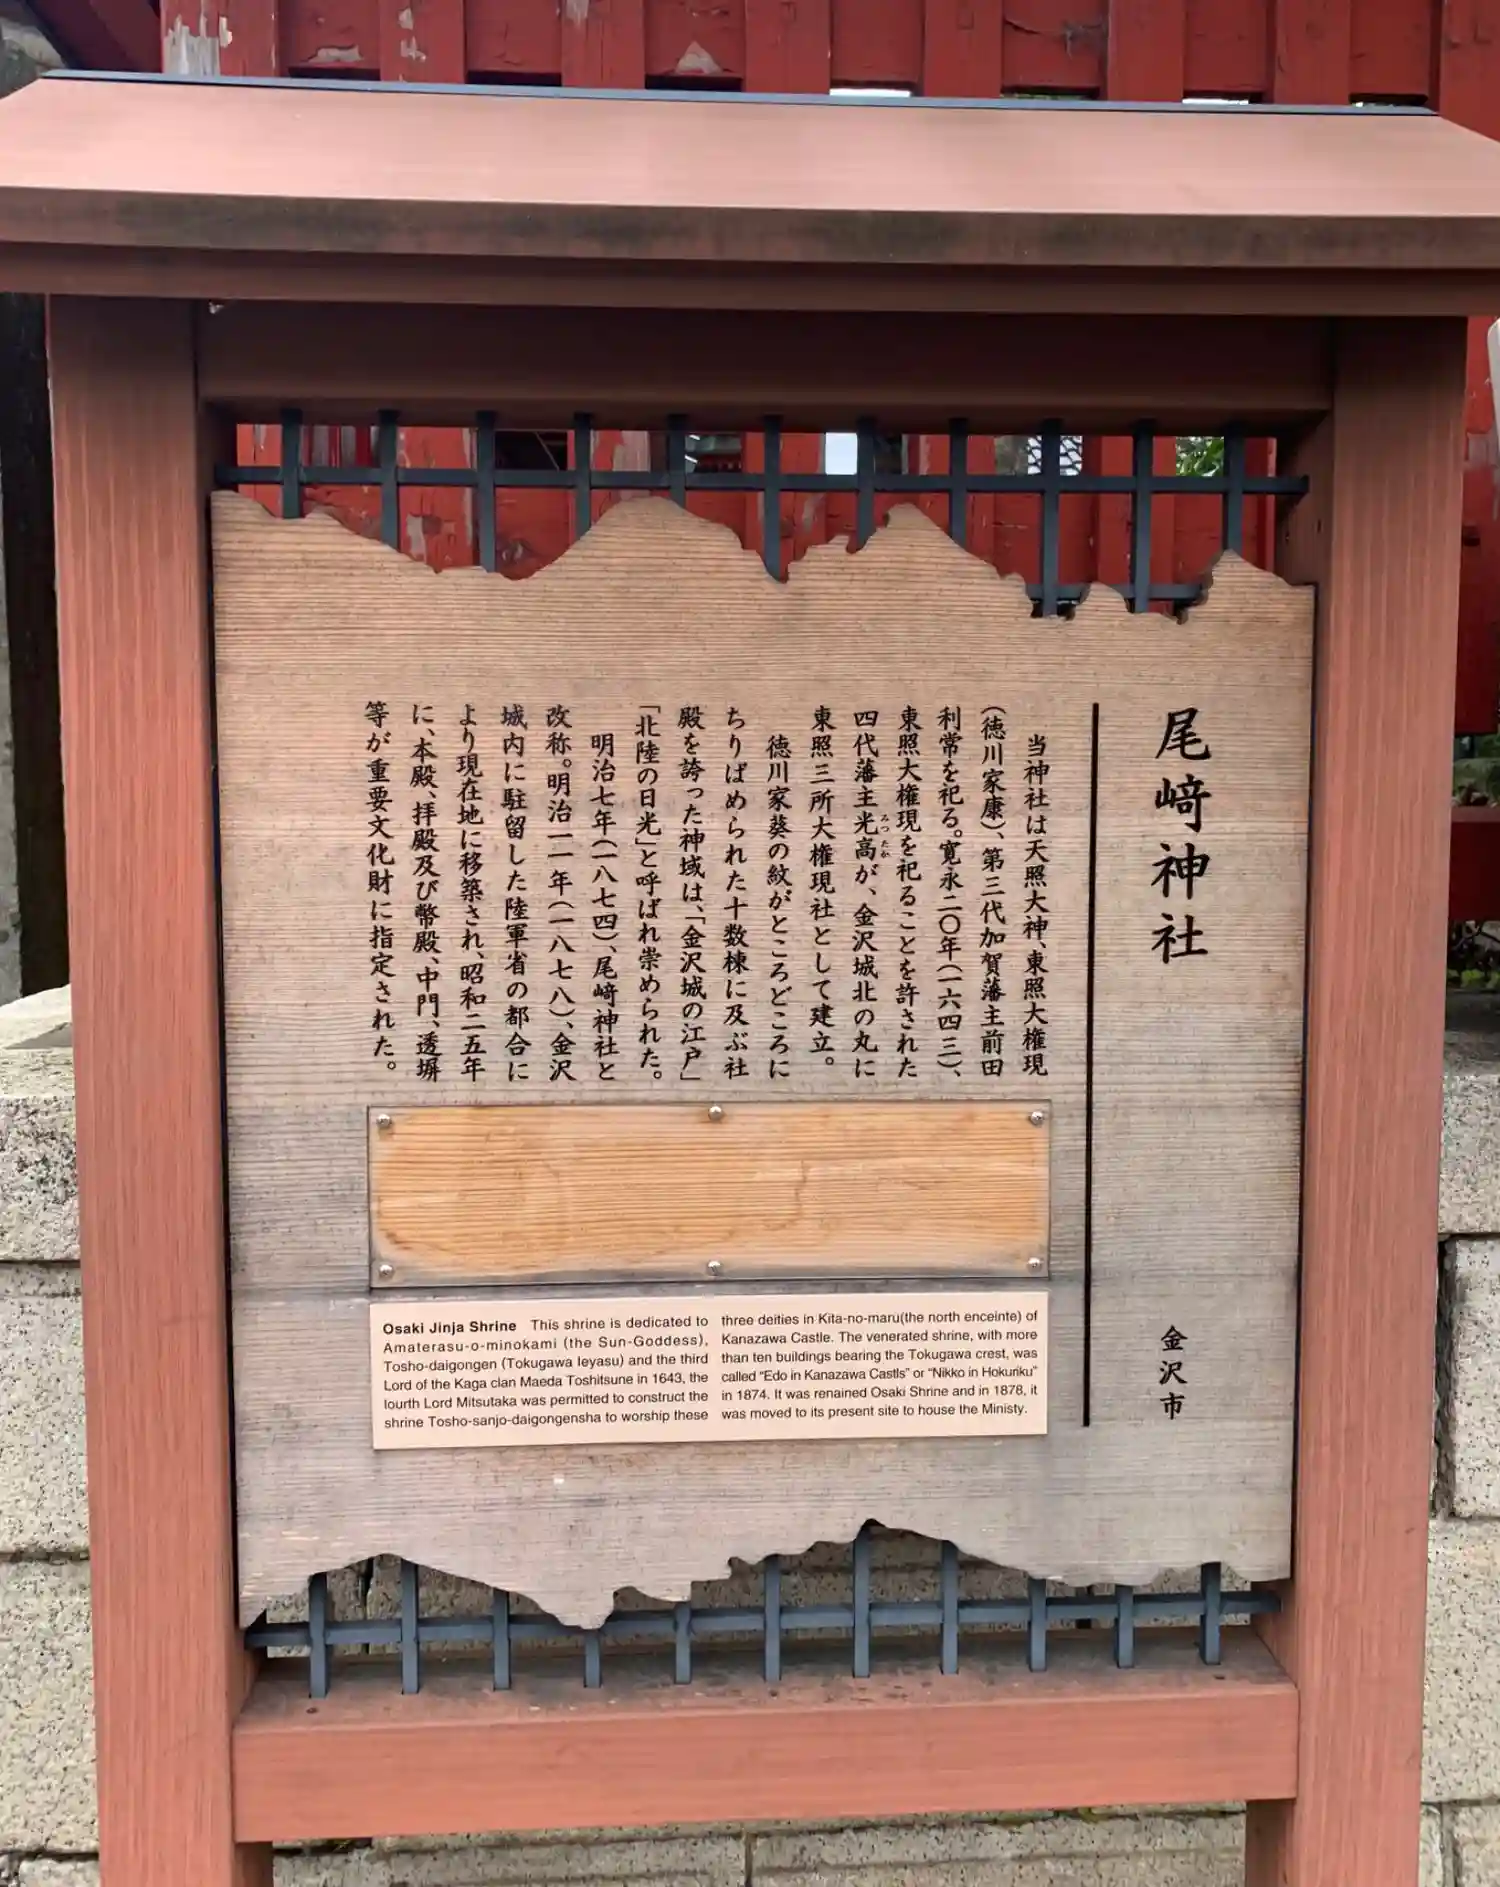 尾﨑神社
当神社は天照大神、東照大権現
(徳川家康)、第三代加賀藩主前田
利常を祀る。寛永二〇年(一六四三)、
東照大権現を祀ることを許された
四代藩主光高が、金沢城北の丸に
みつたか
東照三所大権現社として建立。
徳川家葵の紋がところどころに
ちりばめられた十数棟に及ぶ社
殿を誇った神域は、「金沢城の江戸」
「北陸の日光」と呼ばれ崇められた。
明治七年(一八七四)、尾﨑神社と
改称。明治一一年(一八七八)、金沢
城内に駐留した陸軍省の都合に
より現在地に移築され、昭和二五年
に、本殿、拝殿及び幣殿、中門、透塀
等が重要文化財に指定された。
金沢市
Osaki Jinja Shrine This shrine is dedicated to
Amaterasu-o-minokami (the Sun-Goddess),
Tosho-daigongen (Tokugawa Ieyasu) and the third
Lord of the Kaga clan Maeda Toshitsune in 1643, the
lourth Lord Mitsutaka was permitted to construct the
shrine Tosho-sanjo-daigongensha to worship these
three deities in Kita-no-maru(the north enceinte) of
Kanazawa Castle. The venerated shrine, with more
than ten buildings bearing the Tokugawa crest, was
called "Edo in Kanazawa Castls" or "Nikko in Hokuriku"
in 1874. It was renained Osaki Shrine and in 1878, it
was moved to its present site to house the Ministy.